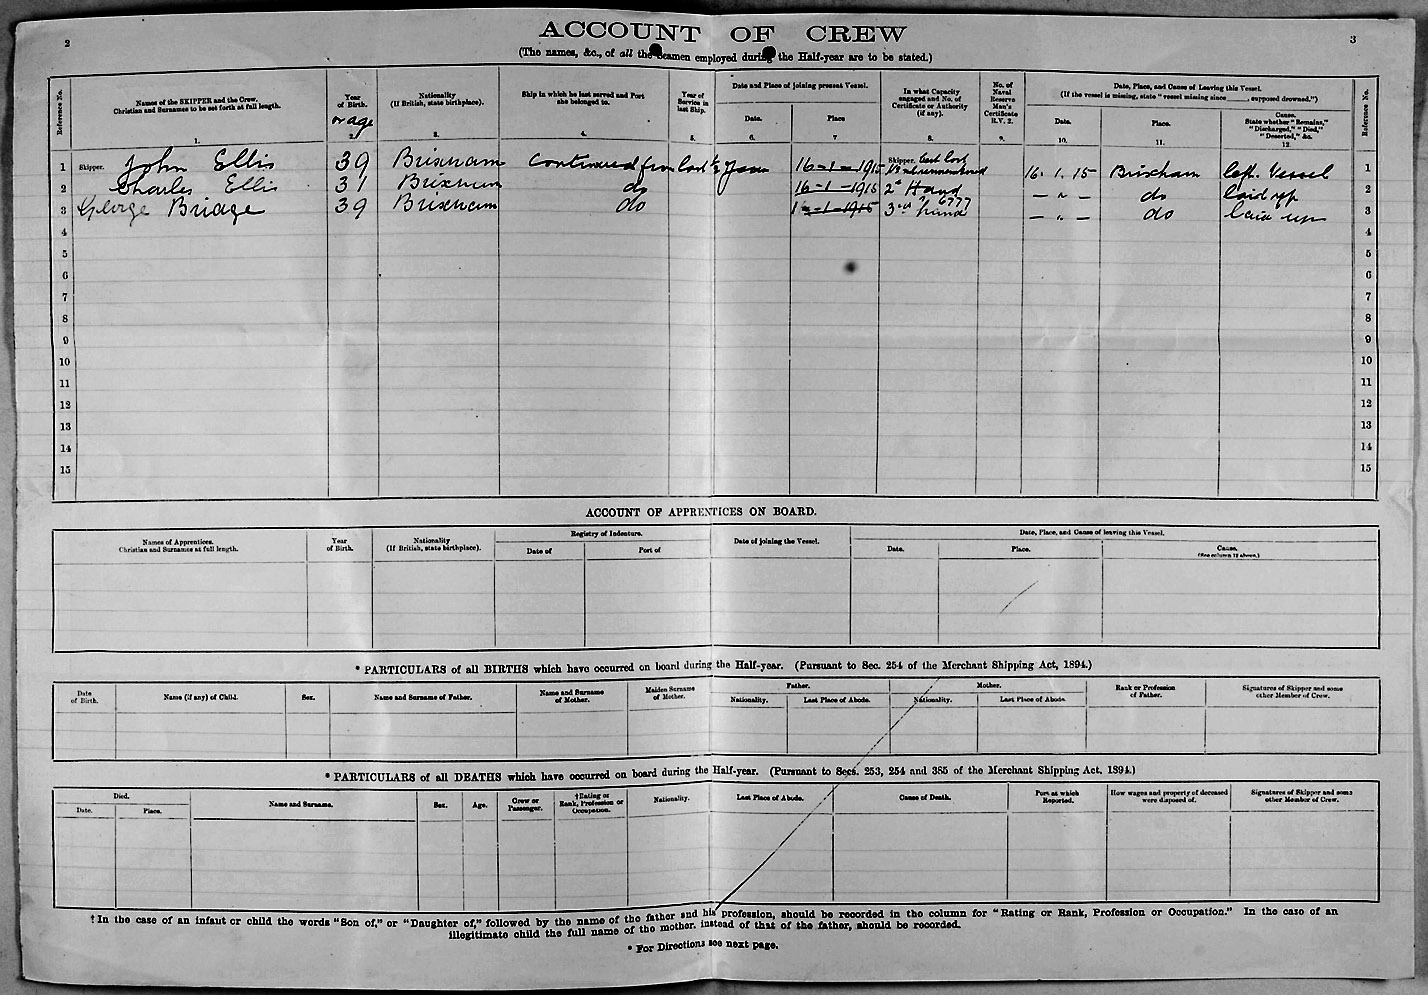 2
ACCOUNT OF CREW
3
(The names, &c., of all the Seamen employed during the Half-year are to be stated.)
Reference No.
Names of the SKIPPER and the Crew.
Christian and Surnames to be set forth at full length.
1.
Year
of Birth.
or age
2.
Nationality
(If British, state birthplace).
3.
Ship in which he last served and Port
she belonged to.
4.
Year of
Service in
last Ship.
5.
Date and Place of joining present Vessel.
Date.
6.
Place
7.
In what Capacity
engaged and No. of
Certificate or Authority
(if any).
8.
No. of
Naval
Reserve
Man's
Certificate
R.V. 2.
9.
Date, Place, and Cause of Leaving this Vessel.
(If the vessel is missing, state "vessel missing since ____, supposed drowned.")
Date.
10.
Place.
11.
Cause.
State whether "Remains,"
"Discharged," "Died,"
"Deserted," &c.
12.
Reference No.
1 Skipper. John Ellis 39 Brixham continued from last ½ Year 16-1-1915 Skipper. Cert lost No not remembered 16. 1. 15 Brixham left Vessel 1
2 Charles Ellis 31 Brixham do 16-1-1915 2d Hand — " — do laid up 2
3 George Bridge 39 Brixham do 16-1-1915 3rd hand 6777 — " — do laid up 3
4 4
5 5
6 6
7 7
8 8
9 9
10 10
11 11
12 12
13 13
14 14
15 15
ACCOUNT OF APPRENTICES ON BOARD.
Names of Apprentices.
Christian and Surnames at full length.
Year
of Birth.
Nationality
(If British, state birthplace).
Registry of Indenture.
Date of
Port of
Date of joining the Vessel.
Date, Place, and Cause of leaving this Vessel.
Date.
Place.
Cause.
(See column 12 above.)
* PARTICULARS of all BIRTHS which have occurred on board during the Half-year. (Pursuant to Sec. 254 of the Merchant Shipping Act, 1894.)
Date
of Birth.
Name (if any) of Child.
Sex.
Name and Surname of Father.
Name and Surname
of Mother.
Maiden Surname
of Mother.
Father.
Nationality.
Last Place of Abode.
Mother.
Nationality.
Last Place of Abode.
Rank or Profession
of Father.
Signatures of Skipper and some
other Member of Crew.
* PARTICULARS of all DEATHS which have occurred on board during the Half-year. (Pursuant to Secs. 253, 254 and 385 of the Merchant Shipping Act, 1894.)
Died.
Date.
Place.
Name and Surname.
Sex.
Age.
Crew or
Passenger.
†Rating or
Rank, Profession or
Occupation.
Nationality.
Last Place of Abode.
Cause of Death.
Port at which
Reported.
How wages and property of deceased
were disposed of.
Signatures of Skipper and some
other Member of Crew.
† In the case of an infant or child the words "Son of," or "Daughter of," followed by the name of the father and his profession, should be recorded in the column for "Rating or Rank, Profession or Occupation." In the case of an
illegitimate child the full name of the mother, instead of that of the father, should be recorded.
* For Directions see next page.